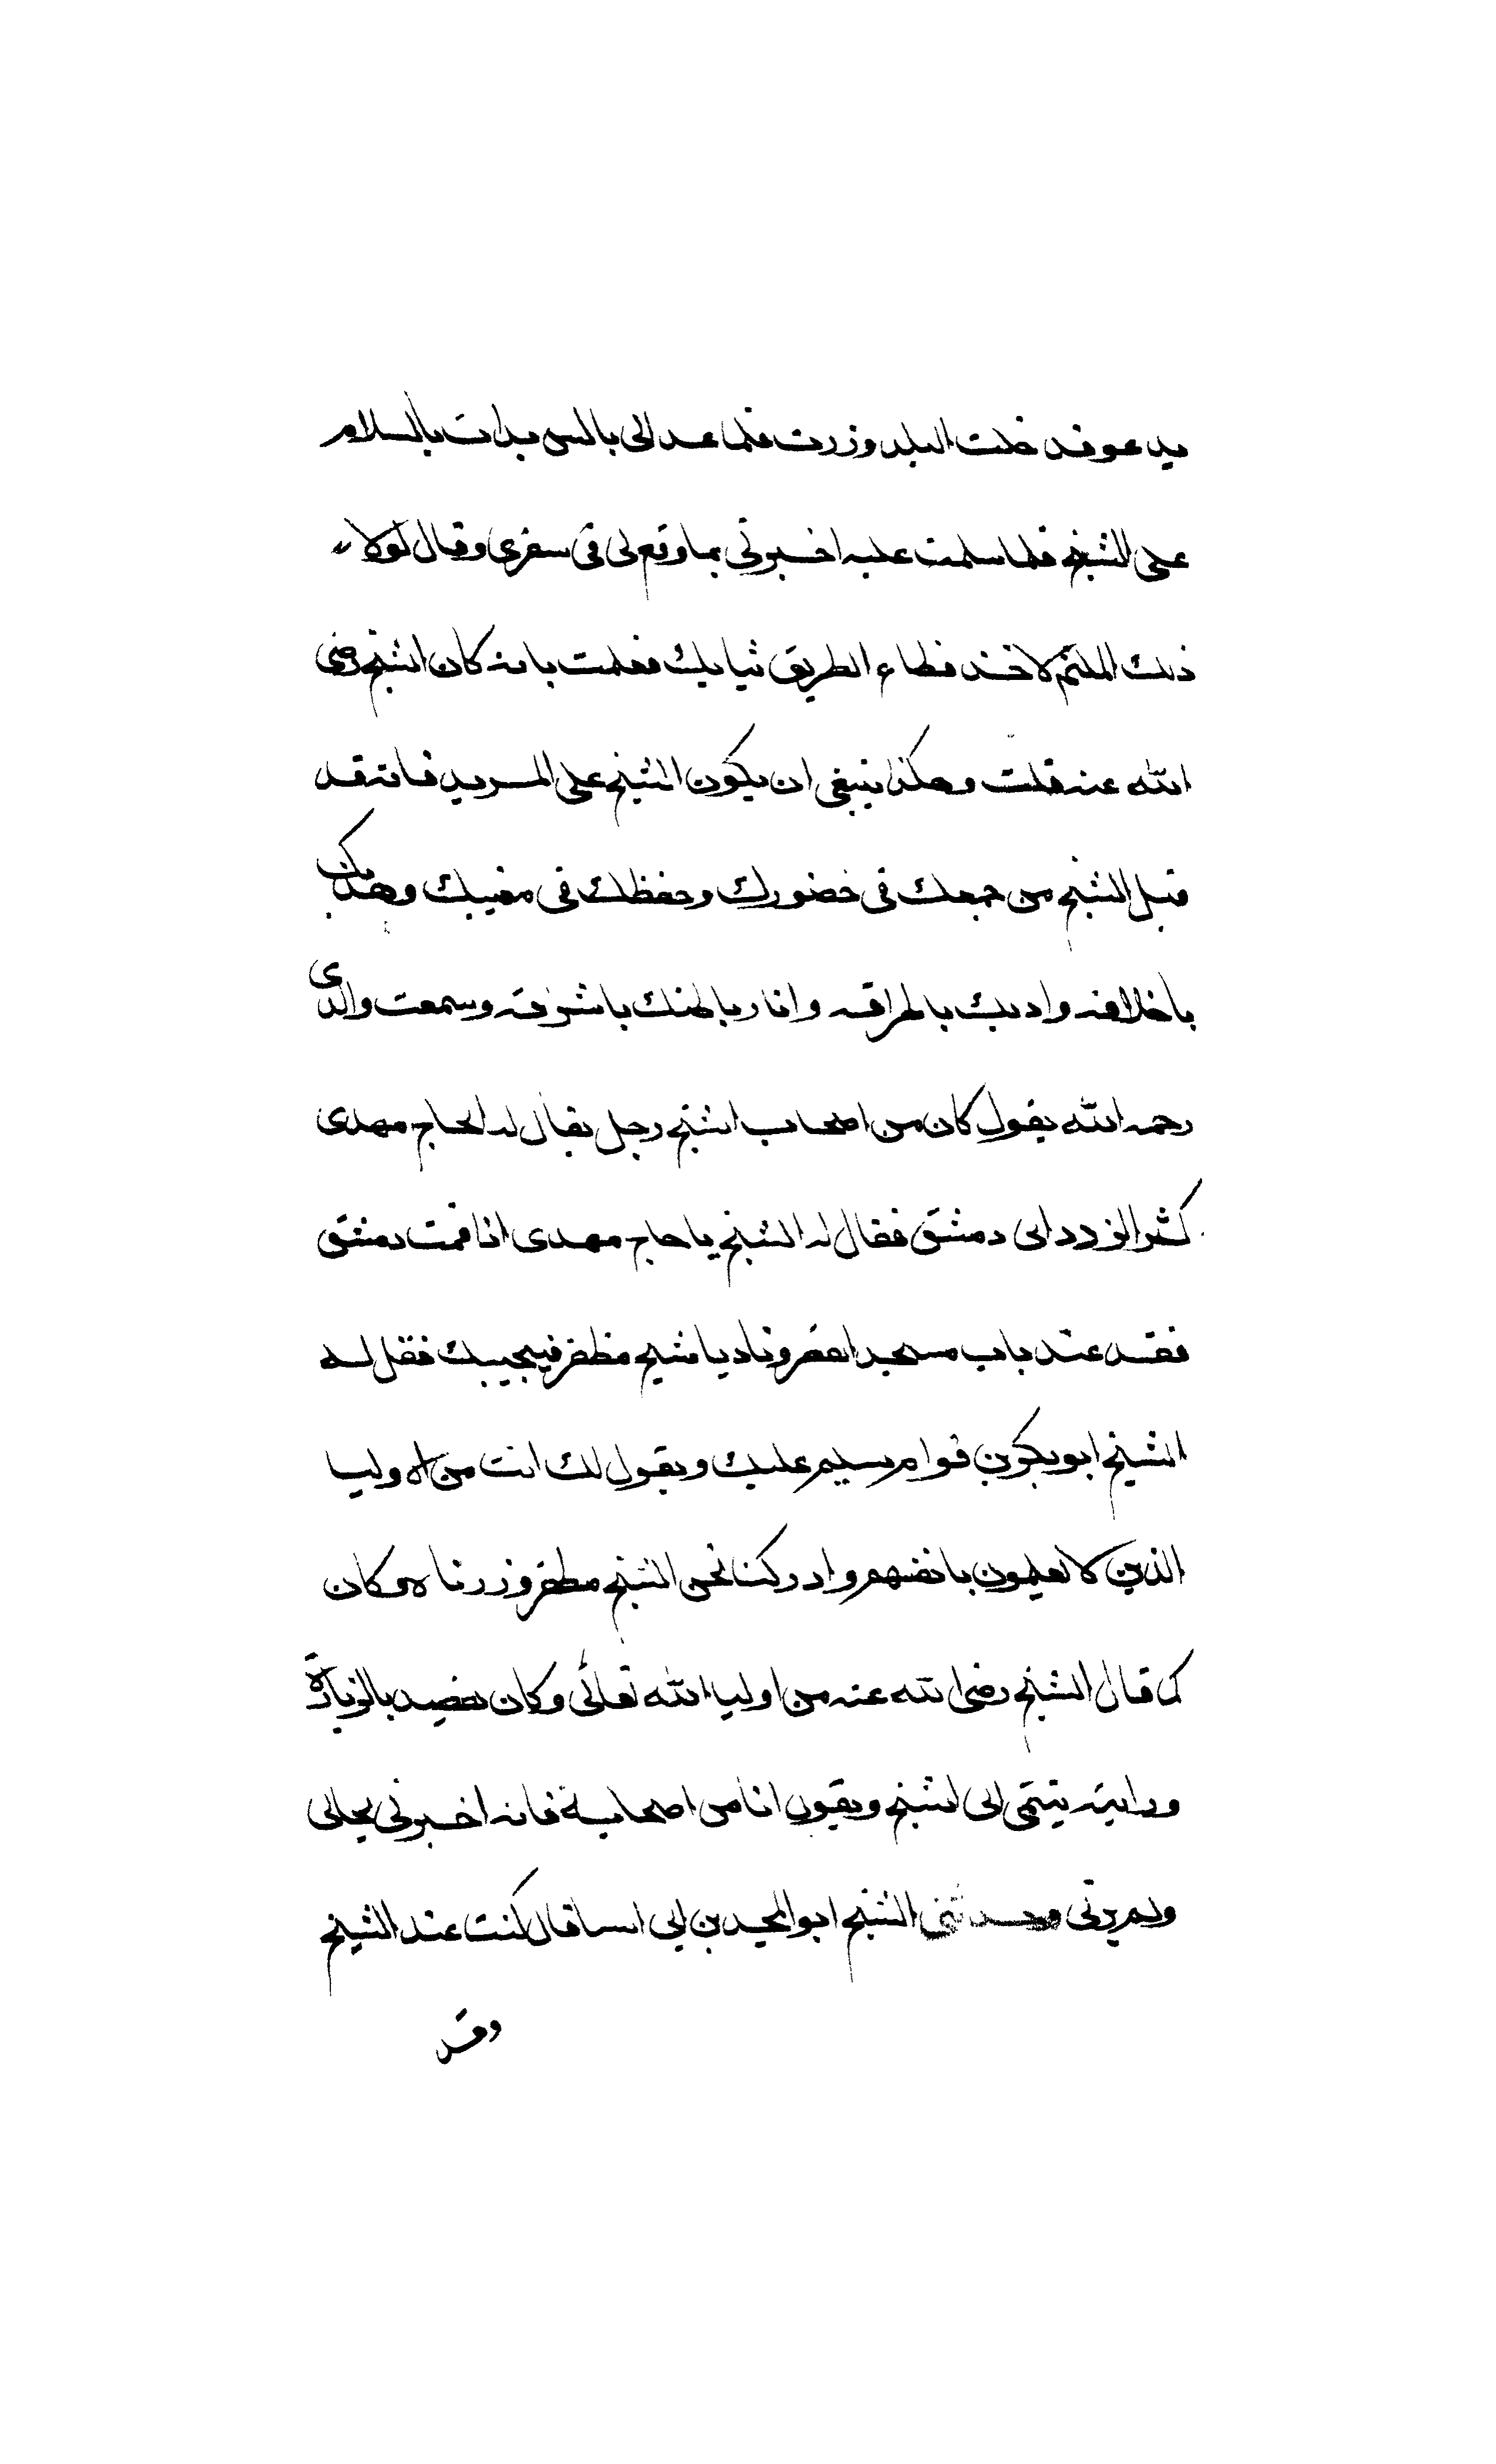 يدعو فدخلت البلد وزرت فلما عدالى بالس بدات بالسلام
على الشيخ فلما سلمت عليه اخبرنى بما وقع لى فى سفرى وقال لولا
ذلك الملثم لاخذ قطاع الطريق ثيابك فعلمت بانه كان الشيخ رضى
الله عنه قلت وهكذا ينبغى ان يكون الشيخ على المريد فانه قد
قيل الشيخ من جمعك فى حضورك وحفظك فى مغيبك وهذبك
باخلاقه وادبك باطراقه وانار باطنك باشراقه وسمعت والدى
رحمه الله يقول كان من اصحاب الشيخ رجل يقال له الحاج مهدى
كثير التردد الى دمشق فقال له الشيخ يا حاج مهدى اذا قمت دمشق
فقد عند باب مسجد القصر وناد يا شيخ مظفر فيجيبك فقل له
الشيخ ابو بكر بن قوام يسلم عليك ويقول لك انت من الاوليا
الذين لا يعلمون بانفسهم وادركنا نحن الشيخ مظفر وزرناه وكان
كما قال الشيخ رضى الله عنه من اوليا الله تعالى وكان يقصد بالزيارة
ورايته ينتمى الى الشيخ ويقول انا من اصحابه فانه اخبرنى بحالى
ولم يرنى وحدثنى الشيخ ابو المجد بن ابى الثنا قال كنت عند الشيخ
وقد